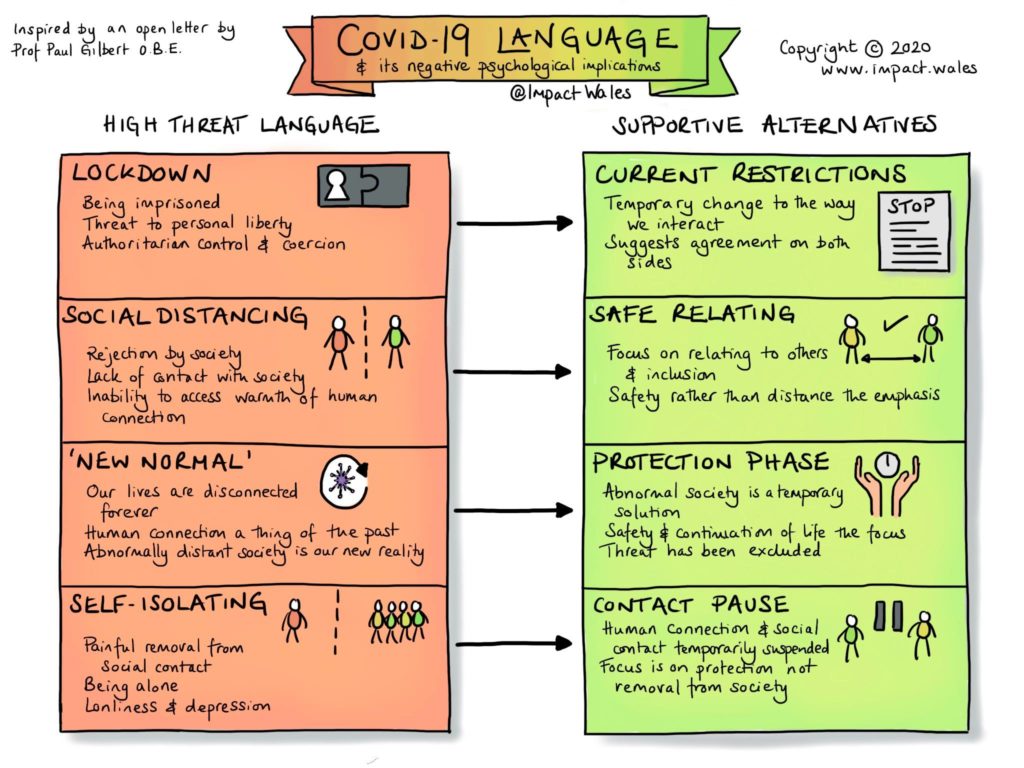 Inspired by an open letter by
Prof Paul Gilbert O.B.E.
COVID-19 LANGUAGE
& its negative psychological implications
@Impact Wales
Copyright © 2020
www.impact.wales
HIGH THREAT LANGUAGE
LOCKDOWN
Being imprisoned
Threat to personal liberty
Authoritarian control & coercion
SOCIAL DISTANCING
Rejection by society
Lack of contact with society
Inability to access warmth of human
connection
'NEW NORMAL'
Our lives are disconnected
forever
Human connection a thing of the past
Abnormally distant society is our new reality
SELF-ISOLATING
Painful removal from
social contact
Being alone
Lonliness & depression
SUPPORTIVE ALTERNATIVES
CURRENT RESTRICTIONS
Temporary change to the way
we interact
Suggests agreement on both
sides
STOP
SAFE RELATING
Focus on relating to others
& inclusion
Safety rather than distance the emphasis
PROTECTION PHASE
Abnormal society is a temporary
solution
Safety & continuation of life the focus
Threat has been excluded
CONTACT PAUSE
Human Connection & social
contact temporarily suspended
Focus is on protection not
removal from society